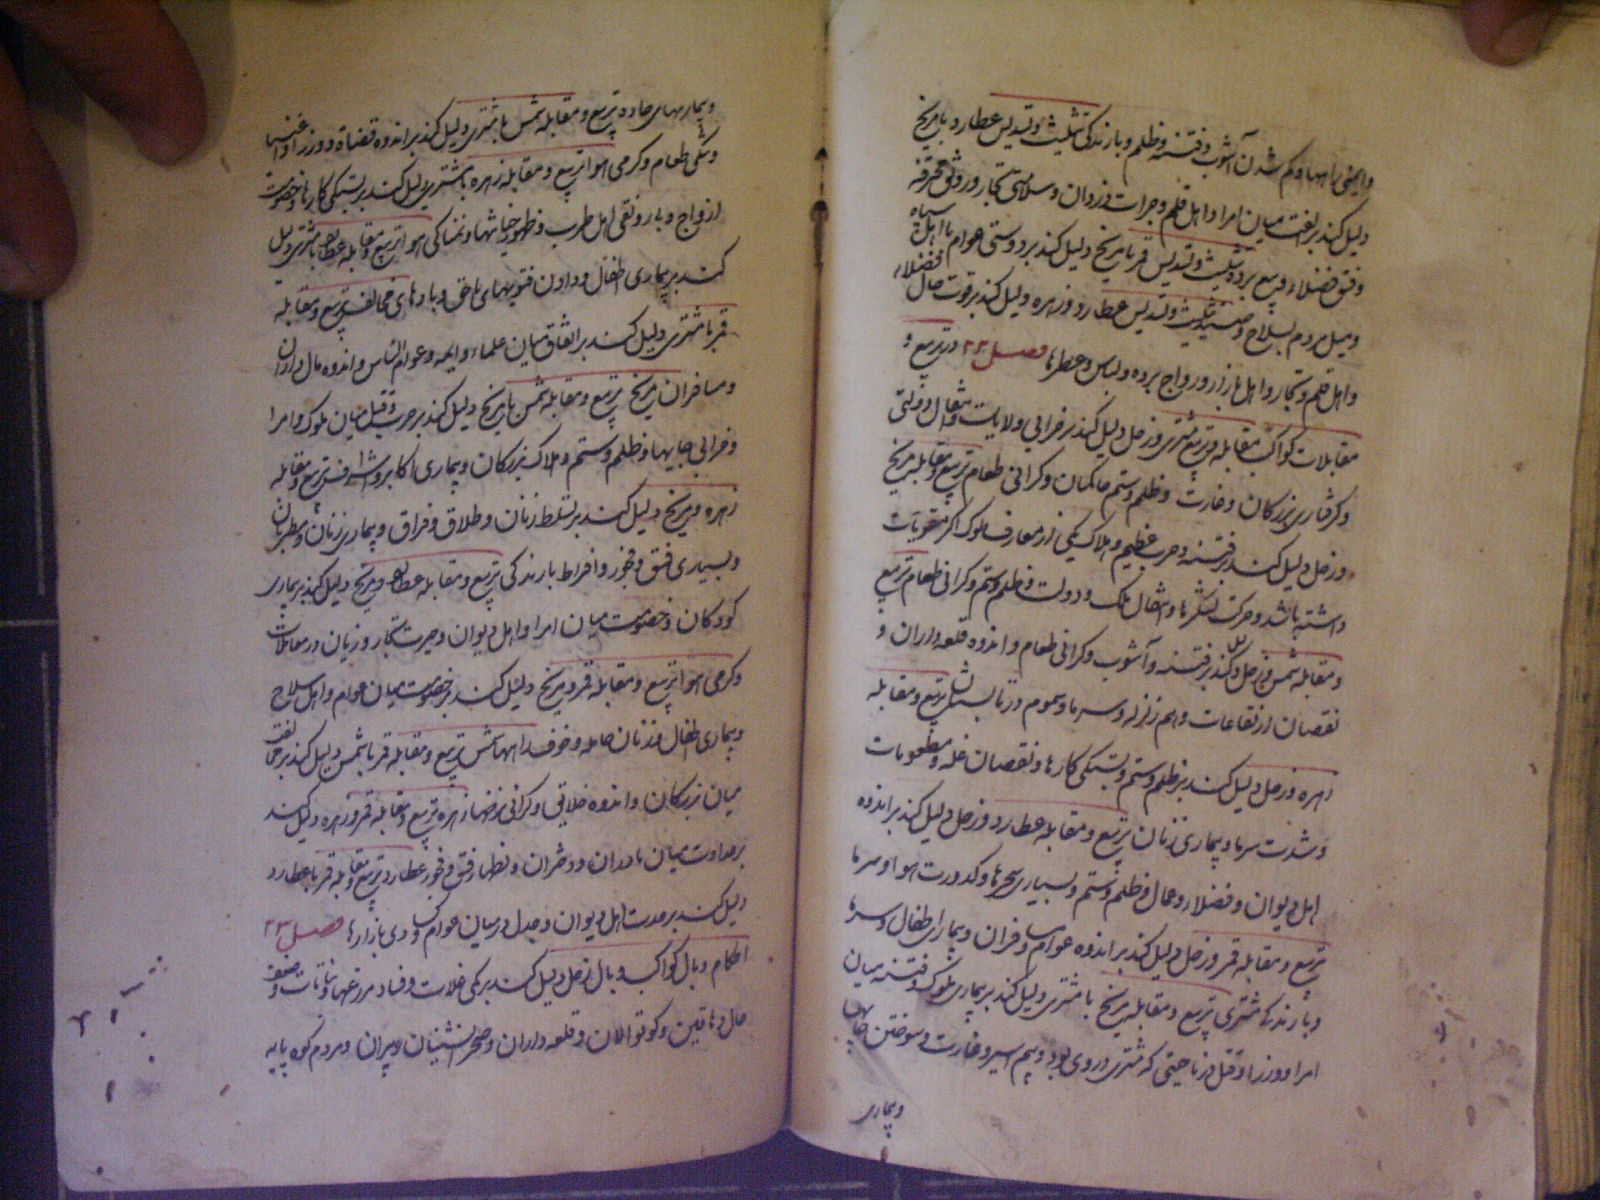 وایمنی راهها و کم شدن آشوب و فتنه و ظلم و بارندکی تثلیث و تسدیس عطارد با مریخ
دلیل کند بر الفت میان امرا و اهل قلم و جرات دزدان و سلامتی تجار و رونق محترفه
وفق فضلا و بیع برده تثلیث و تسدیس قمر با مریخ دلیل کند بر دوستی عوام با اهل سپاه
ومیل مردم بسلاح و صید تثلیث و تسدیس عطارد و زهره دلیل کند بر قوت حال فضلا
و اهل قلم و تجار و اهل بازار و رواج برده و لباس و عطرها فصل ۲۲ در تربیع و
مقابلات کواکب مقابله و تربیع مشتری و زحل دلیل کند بر خرابی ولایات و انتقال دولتی
و کرفتاری بزرکان و غارت و ظلم و ستم حاکمان و کرانی طعام تربیع و مقابله مریخ
و زحل دلیل کند بر فتنه و حرب عظیم و هلاک یکی از معارف ملوک اکر مقویات
داشته باشد و حرکت لشکرها و انتقال ملک و دولت و ظلم و ستم و کرانی طعام تربیع
و مقابله شمس و زحل دلیل کند بر فتنه و آشوب و کرانی طعام و اندوه قلعه داران و
نقصان ارتفاعات و بیم زلزله و سرما و سموم در تابستان تربیع و مقابله
زهره و زحل دلیل کند بر ظلم و ستم و بستکی کارها و نقصان غله و مطعومات
و شدت سرما و بیماری زنان تربیع و مقابله عطارد و زحل دلیل کند بر اندوه
اهل دیوان و فضلا و عمال و ظلم و ستم و بسیاری سحرها و کدورت هوا و سرما
تربیع و مقابله قمر و زحل دلیل کند بر اندوه عوام و مسافران و بیماری اطفال و سرما
و بارندکی مشتری تربیع و مقابله مریخ با مشتری دلیل کند بر بیماری ملوک و فتنه میان
امرا و وزرا و قتل در ناحیتی که مشتری در وی بود و بیم اسیر و غارت و سوختن جایها
و بیماری
و بیماریهای حاد و تربیع و مقابله شمس با مشتری دلیل کند بر اندوه قضاة و وزرا و اغنیا
و تنکی طعام و کرمی هوا تربیع و مقابله زهره با مشتری دلیل کند بر بستکی کارها و خصومت
ازواج و بی رونقی اهل طرب و ظهور خیانتها و نمناکی هوا تربیع و مقابله عطارد با مشتری دلیل
کند بر بیماری اطفال و دادن فتویهای ناحق و بادهای مخالف تربیع و مقابله
قمر با مشتری دلیل کند بر اتفاق میان علماء و ایمه و عوام الناس و اندوه مال داران
و مسافران مریخ تربیع و مقابله شمس با مریخ دلیل کند بر حرب و قتل میان ملوک و امرا
و خرابی جایها و ظلم و ستم و هلاک بزرکان و بیماری اکابر و اشراف تربیع و مقابله
زهره و مریخ دلیل کند بر تسلط زنان و طلاق و فراق و بیماری زنان و مطربان
و بسیاری فسق و فجور و افراط بارندکی تربیع و مقابله عطارد و مریخ دلیل کند بر بیماری
کودکان و خصومت میان امرا و اهل دیوان و حیرت تجار و زیان در معاملات
و کرمی هوا تربیع و مقابله قمر و مریخ دلیل کند بر خصومت میان عوام و اهل سلاح
و بیماری اطفال و زنان حامله و خوف راهها شمس تربیع و مقابله قمر با شمس دلیل کند بر مخالفت
میان بزرکان و اندوه خلایق و کرانی نرخها زهره تربیع و مقابله قمر و زهره دلیل کند
بر عداوت میان مادران و دختران و اظهار فسق و فجور عطارد تربیع و مقابله قمر با عطارد
دلیل کند بر مدت اهل دیوان و جدل در میان عوام و کسادی بازارها فصل ۲۳
احکام وبال کواکب وبال زحل دلیل کند بر کمی غلات و فساد مزرعها و نباتات و ضعف
حال دهاقین و کوتوالان و قلعه داران و صحرانشینان و پیران و مردم کوه پایه